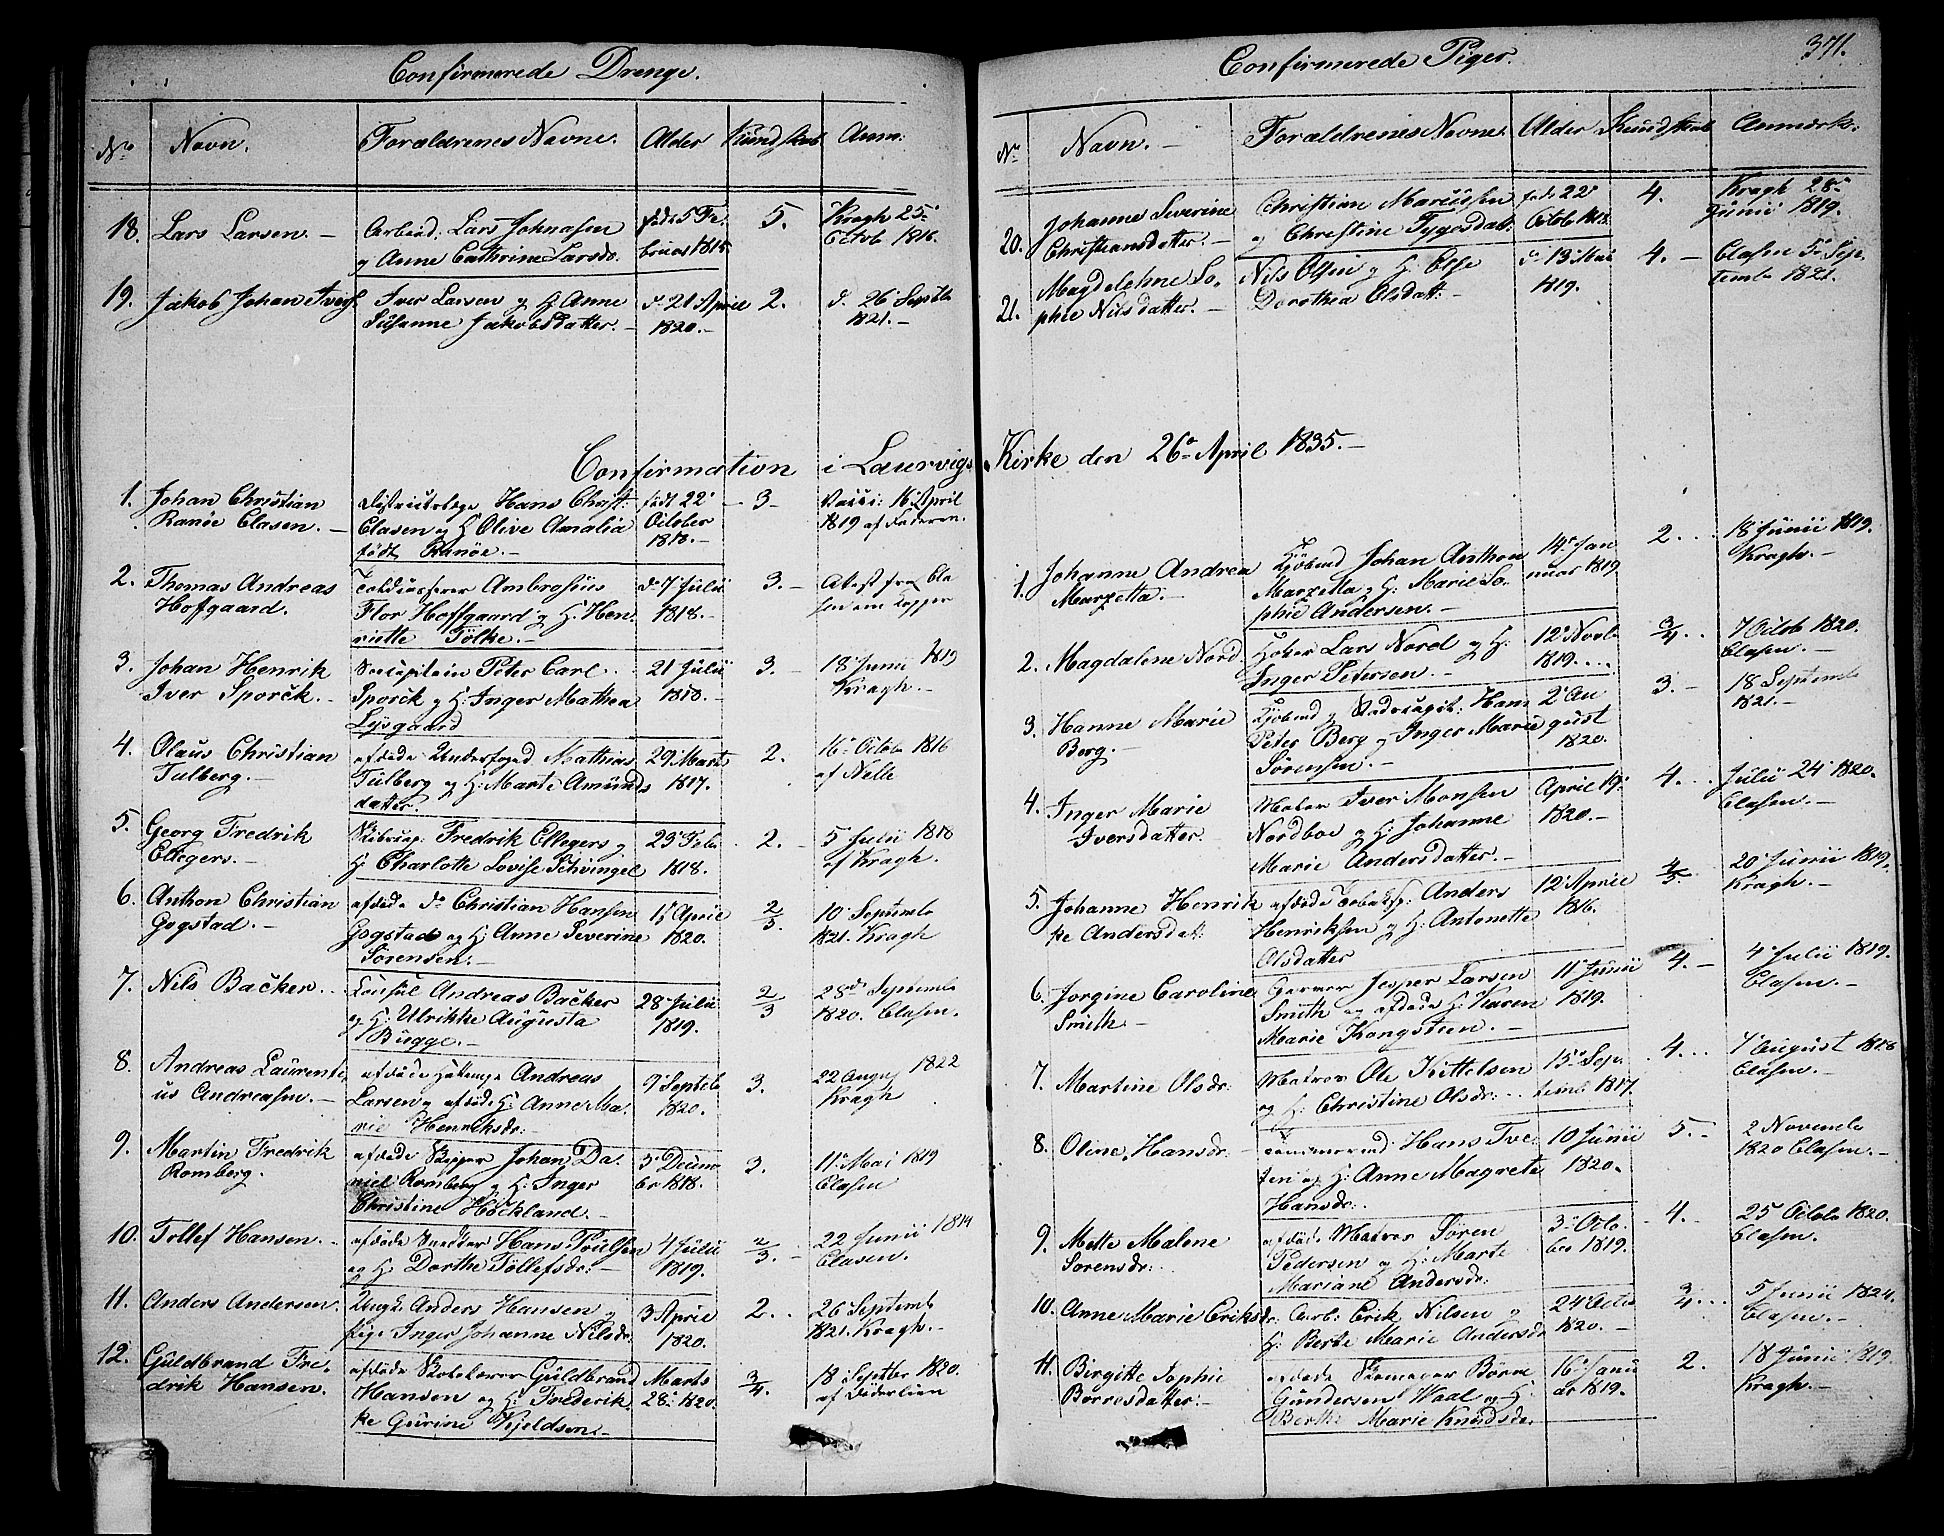 Confirmerede Drenge.
No Navn. Forældrenes Navne. Alder Kundskab Anm:
18. Lars Larsen. — Arbeid. Lars Johnasen født 5 Fe- 5. Kragh 25.
og Anne Cathrine Larsd. bruar 1815 Octob 1816.
19. Jakob Johan Ivers. Iver Larsen og H. Anne d. 21 April 2. d. 26 Septb
Susanne Jakobsdatter. — 1820. — 1821. —
Confirmation i Laurvigs
1. Johan Christian Districtslæge Hans Christ: født 22 — 3 — Vacci: 16 April
Ranöe Clasen. — Clasen og H. Olive Amalia October 1819 af Faderen.
født Ranöe. — 1818. —
2. Thomas Andreas Ambrosius d. 7 Julii 3. — Atest fra Cla
Hofgaard. Flor Hoffgaard og H. Hen- 1818. — sen om Kopper
riette Tölke. —
3. Johan Henrik Peter Carl 21 Julii 3. — 18 Junii 1819
Iver Sporck. — Sporck og H: Inger Mathea 1818. — Kragh. —
Lysgaard
4. Olaus Christian afdøde Underfoged Mathias 29 Marts 2. 16 Octob 1816
Tulberg. — Tulberg og H: Marte Amunds 1817. af Nelle
datter. —
5. Georg Fredrik Fredrik Ellegers og 23 Feb. 2. — 5 Julii 1818
Ellegers. — H. Charlotte Lovise Schvingel 1818. — af Kragh. —
6. Anthon Christian afdøde do Christian Hansen 17 April 2/3. 10 Septemb
Gogstad. — Gogstad og H: Anne Severine 1820. 1821. Kragh
Sörensen. —
7. Nils Backer. Consul Andreas Backer 28 Julii 2/3 Septemb
og H: Ulrikke Augusta 1819. 1820. Clasen.
Bugge. —
8. Andreas Laurenti- afdøde Andreas 9 Septeb 3. 22 Augus 1822
us Andreasen. — Larsen og afdøde H: Anne Ma- 1820. Kragh
rie Henriksdr: —
9. Martin Fredrik afdøde Skipper Johan Da- 3 Decem- 3. 11 Mai 1819
Romberg. niel Romberg og H: Inger ber 1818. Clasen
Christine Höckland. —
10. Tollef Hansen. — afdøde Snedker Hans Poulsen 4 Julii 2/3. 22 Junii 1819
og H. Dorthe Tollefsdr: — 1819. Clasen.
11. Anders Andersen. Ungk. Anders Hansen og 3 April 2. 26 Septemb
Pige Inger Johanne Nilsdr. 1820. 1821. Kragh. —
12. Guldbrand Fre- afdøde Skolelærer Guldbrand Marts 3/4. 18 Septber 1820.
drik Hansen. Hansen og H: Frederik- 28. 1820.
ke Gurine Kjeldsen. —
Confirmerede Piger. 371.
No Navn. — Forældrenes Navne. Alder Kundskab Anmærk:
20. Johanne Severine Christian Marcussen føde 22 4. Kragh 28
Christiansdatter. — og Christine Tygesdat. Octob 1818. Junii 1819.
21. Magdelehne So- Nils Olsen og H. Else d. 13 Mai 4. — Clasen 5 Sep-
phie Nilsdatter. — Dorothea Olsdatt: — 1819. temb 1821.
Kirke den 26 April 1835. —
1. Johanne Andrea Kjöbmd Johan Anthon 14 Jan 2. 18 Junii 1819.
Marzetta. — Marzetta og H: Marie So- nuar 1819 Kragh. —
phie Andersen. —
2. Magdalene Nord. Höker Lars Nord og H: 12 Novb 3/4. 7 Octob 1820.
Inger Petersen. — 1819. Clasen. —
3. Hanne Marie Kjöbmd og Stadscapit: Hans 2 Au 3. — 18 Septemb
Berg. — Peter Berg og Inger Marie gust 1821. —
Sörensen. — 1820.
4. Inger Marie Iver Monsen April 19 4. Julii 24 1820.
Iversdatter. — Nordboe og H: Johanne 1820. — Clasen. —
Marie Andersdatter. —
5. Johanne Henrik- afdøde Anders 12 April 4/5. 20 Junii 1819.
ke Andersdat. Henriksen og H: Antonette 1816. Kragh. —
Olsdatter
6. Jorgine Caroline Jesper Larsen 11 Junii 4. — 4 Julii 1819.
Smith — Smith og afdøde H: Karen 1819. Clasen. —
Marie Kongsteen. —
7. Martine Olsdr: Matros Ole Kittelsen 15 Sep- 4. 7 August 1818
og H: Christine Olsdr: temb 1817. Clasen. —
8. Oline Hansdr: Hans Tve- 10 Junii 5. — 2 Novemb
ten og H: Anne Magrete 1820. 1820 Clasen. —
Hansdr: —
9. Mette Malene afdøde Matros Sören 3 Octo- 4. — 25 Octob 1820.
Sorensdr: Pedersen og H: Marte ber 1819. Clasen. —
Mariane Andersdr:
10. Anne Marie Eriksdr: Arb: Erik Nilsen og 24 Octo 3/4. 5 Junii 1824.
H: Berte Marie Andersdr 1820. — Clasen. —
11. Birgitte Sophie afdøde Skomager Börre 16 Janu 2. 18 Junii 1819.
Borresdatter. — Gundersen Waal og H: ar 1819. Kragh. —
Berthe Marie Knudsdr.